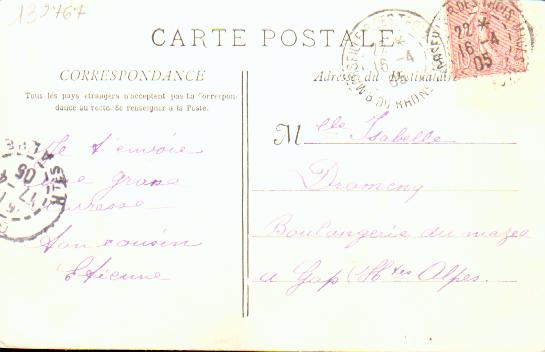 132767
CARTE POSTALE
CORRESPONDANCE
Tous les pays étrangers n'acceptent pas la Correspon-
dance au recto. Se renseigner à la Poste.
Adresse du Destinataire
22 *
16 - 4
05
22 *
16 - 4
05
BCHES DU RHONE
Je t'envoie
une gross
caresse
ton cousin
Etienne
Mlle Isabelle
Dromeny
Boulangerie du mazel
a Gap (Htes Alpes.